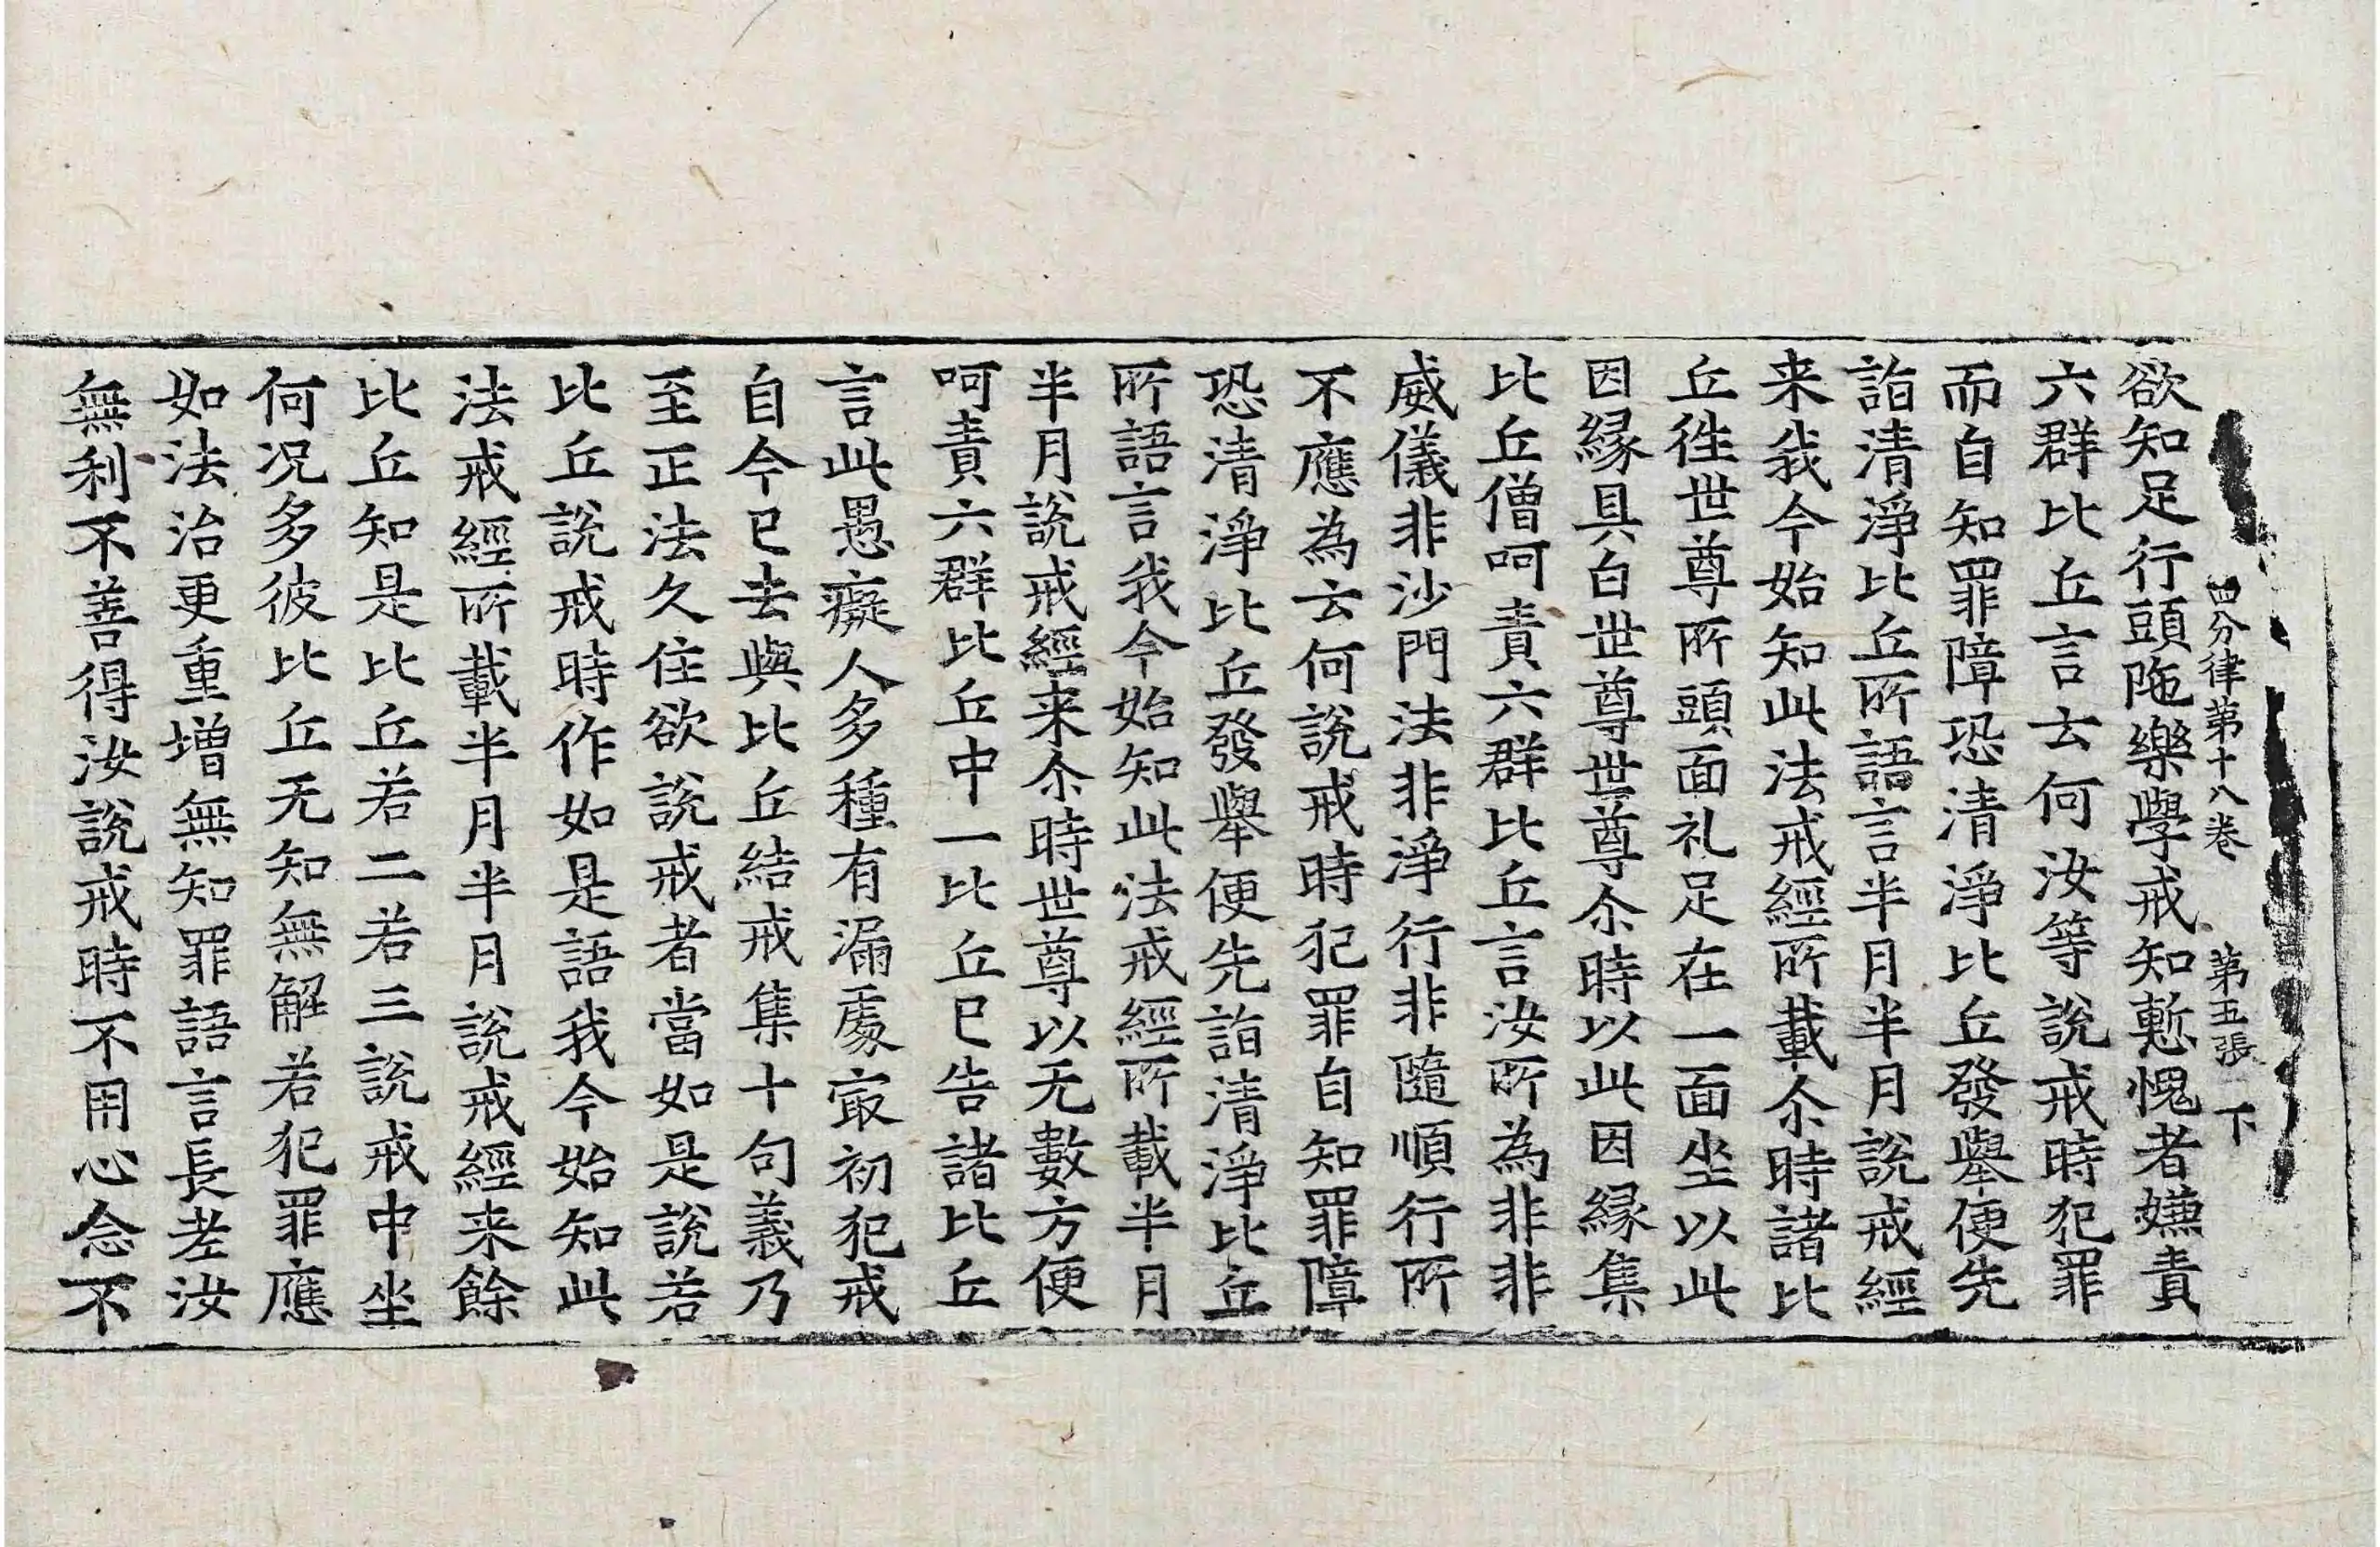 四分律第十八卷 第五張 下
欲知足行頭陁樂學戒知慙愧者嫌責
六群比丘言云何汝等說戒時犯罪
而自知罪障恐清淨比丘發舉便先
詣清淨比丘所語言半月半月說戒經
来我今始知此法戒經所載尒時諸比
丘徃世尊所頭面礼足在一面坐以此
因縁具白世尊世尊尒時以此因縁集
比丘僧呵責六群比丘言汝所為非非
威儀非沙門法非淨行非隨順行所
不應為云何說戒時犯罪自知罪障
恐清淨比丘發舉便先詣清淨比丘
所語言我今始知此法戒經所載半月
半月說戒經来尒時世尊以无數方便
呵責六群比丘中一比丘已告諸比丘
言此愚癡人多種有漏處㝡初犯戒
自今已去與比丘結戒集十句義乃
至正法久住欲說戒者當如是說若
比丘說戒時作如是語我今始知此
法戒經所載半月半月說戒經来餘
比丘知是比丘若二若三說戒中坐
何况多彼比丘无知無解若犯罪應
如法治更重增無知罪語言長老汝
無利不善得汝說戒時不用心念不